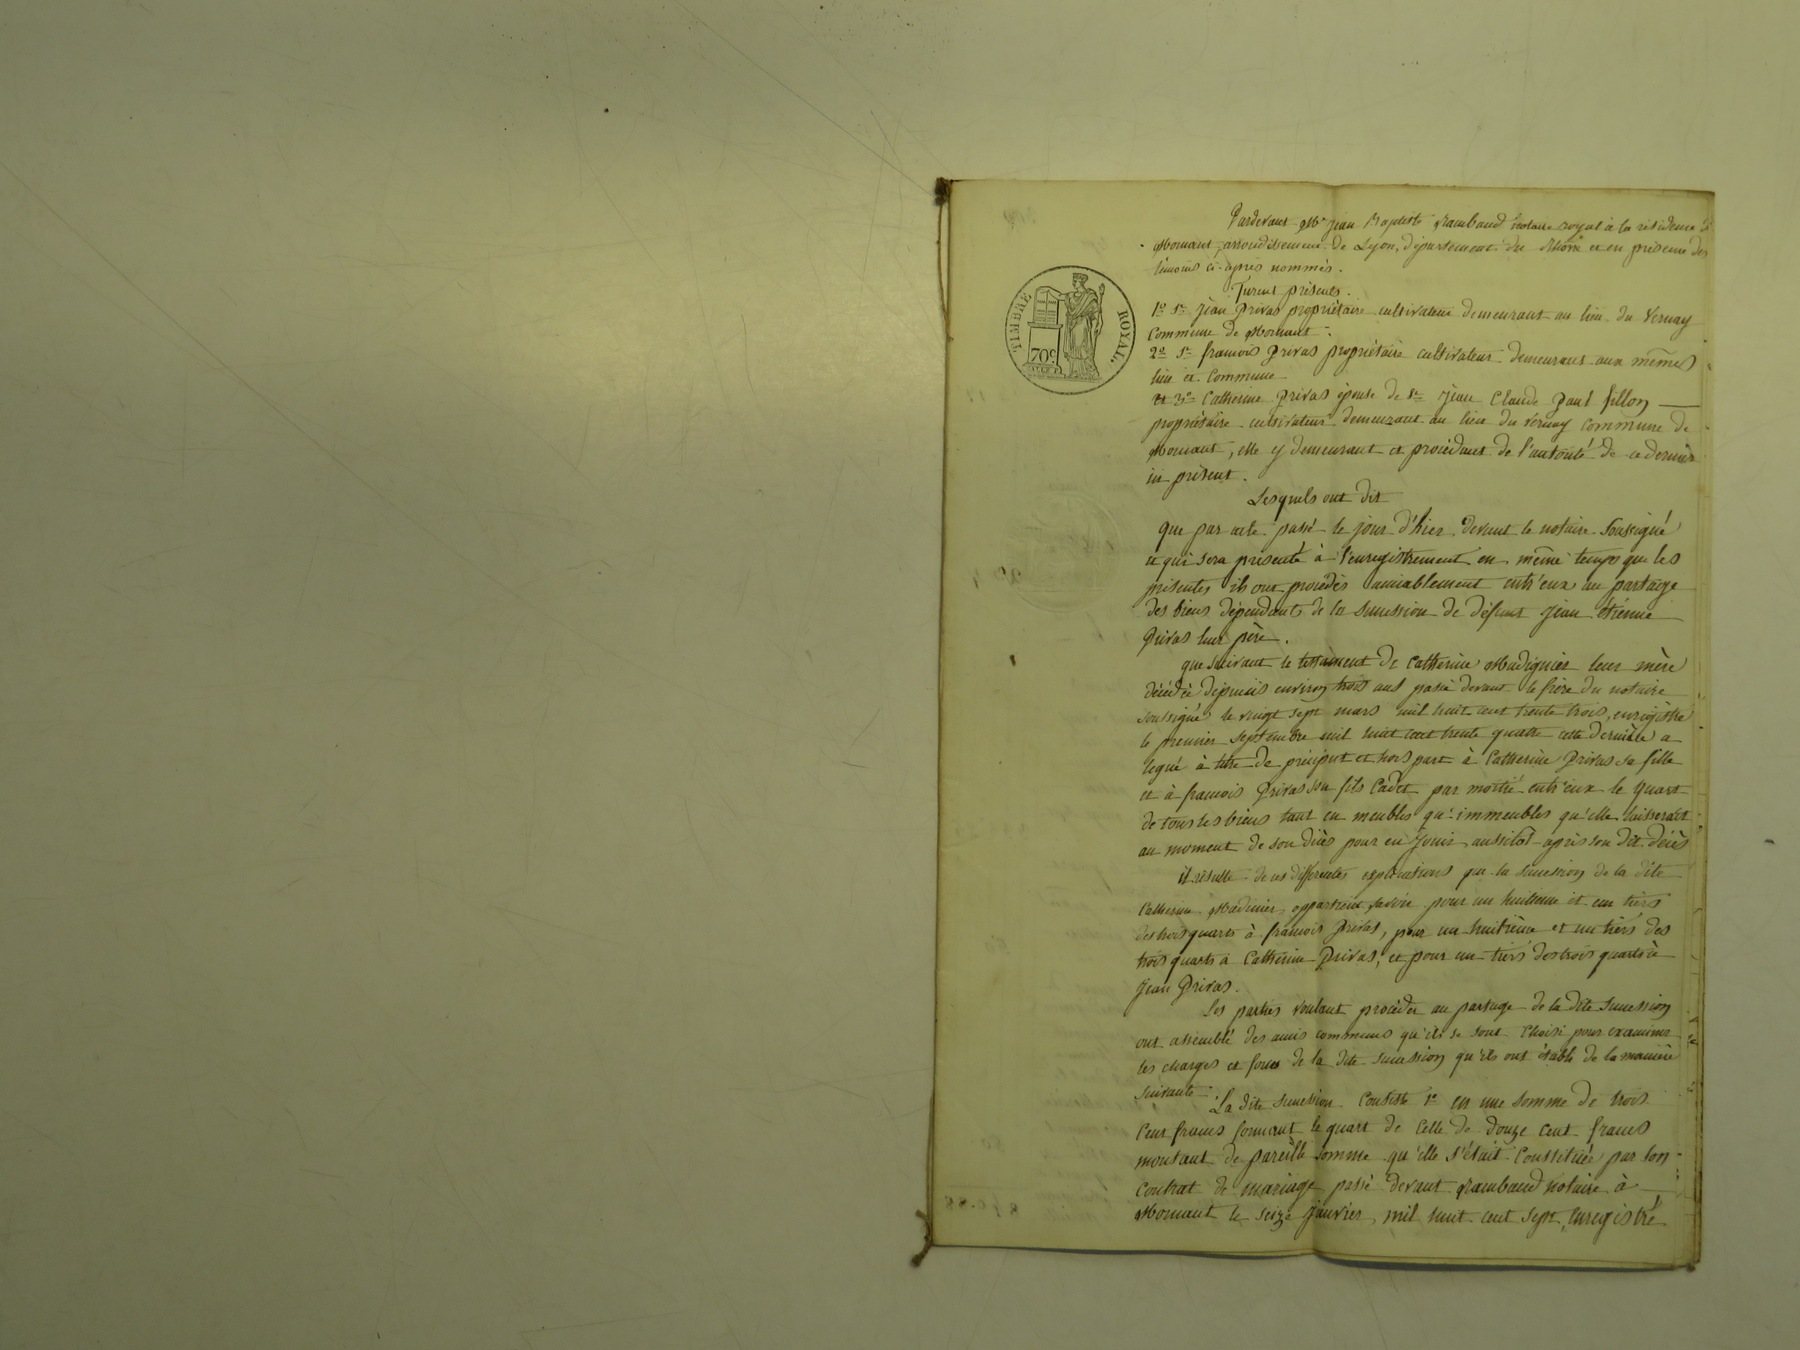 Pardevant Me Jean Baptiste Rambaud notaire royal à la résidence de
Mornant, arrondissement de Lyon, département du Rhône et en présence des
témoins ci-après nommés.
furent présents.
TIMBRE ROYAL
70c
1o Sr Jean Privas propriétaire cultivateur demeurant au lieu du Vernay
Commune de Mornant.
2o Sr françois Privas propriétaire cultivateur demeurant aux mêmes
lieu et Commune
Et 3o Catherine Privas épouse de Sr Jean Claude Paul fillon
propriétaire cultivateur demeurant au lieu du Vernay commune de
Mornant, elle y demeurant et procédant de l'autorité de ce dernier
ici présent.
Lesquels ont dit
que par acte passé le jour d'hier devant le notaire Soussigné
et qui sera présenté à l'enregistrement en même temps que les
présentes ils ont procédés amiablement entr'eux au partage
des biens dépendants de la succession de défunt Jean étienne
Privas leur père.
que suivant le testament de Catherine Madignier leur mère
décédée depuis environ trois ans passé devant le frère du notaire
soussigné le vingt sept mars mil huit cent trente trois, enregistré
le premier septembre mil huit cent trente quatre cette dernière a
legué à titre de préciput et hors part à Catherine Privas sa fille
et à françois Privas son fils Cadet par moitié entr'eux le quart
de tous les biens tant en meubles qu'immeubles qu'elle laisserait
au moment de son décès pour en Jouir aussitôt après son dit décès
il résulte de ces différentes explications que la succession de la dite
Catherine Madinier appartient, savoir pour un huitième et un tiers
des trois quarts à françois Privas, pour un huitième et un tiers des
trois quarts à Catherine Privas, et pour un tiers des trois quarts à
Jean Privas.
Les parties voulant procéder au partage de la dite succession
ont assemblé des amis communs qu'ils se sont choisi pour examiner
les charges et forces de la dite succession qu'ils ont établi de la manière
suivante.
La dite succession Consiste 1o en une somme de trois
Cent francs formant le quart de Celle de douze cent francs
montant de pareille somme qu'elle s'était Constituée par son
Contrat de mariage passé devant Rambaud notaire à
Mornant le seize Janvier mil huit cent sept, enregistré